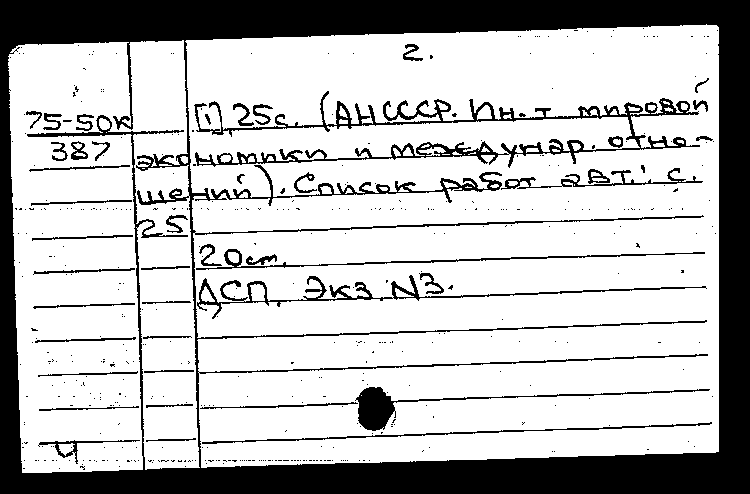 2.
75-50к [1], 25с. (АН СССР. Ин-т мировой
387 экономики и междунар. отно-
шений). Список работ авт.: с.
25
20см.
ДСП. Экз. N3.
Ч